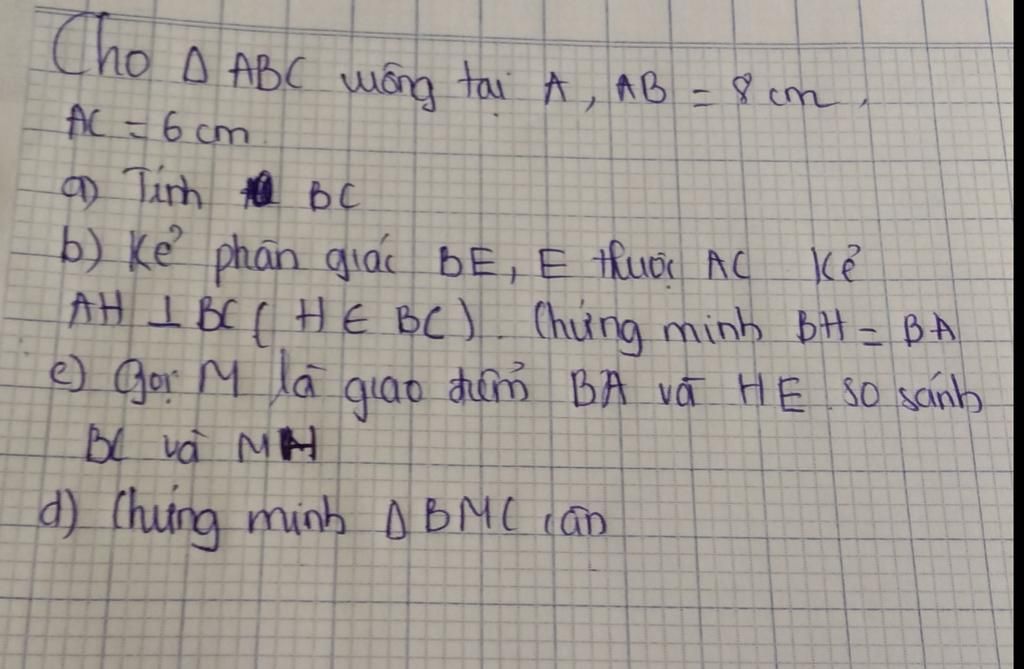 Cho Δ ABC vuông tại A, AB = 8 cm,
AC = 6 cm
a) Tính BC
b) Kẻ phân giác BE, E thuộc AC Kẻ
AH ⊥ BC ( H ∈ BC ). Chứng minh BH = BA
c) Gọi M là giao điểm BA và HE so sánh
BC và MH
d) Chứng minh Δ BMC cân